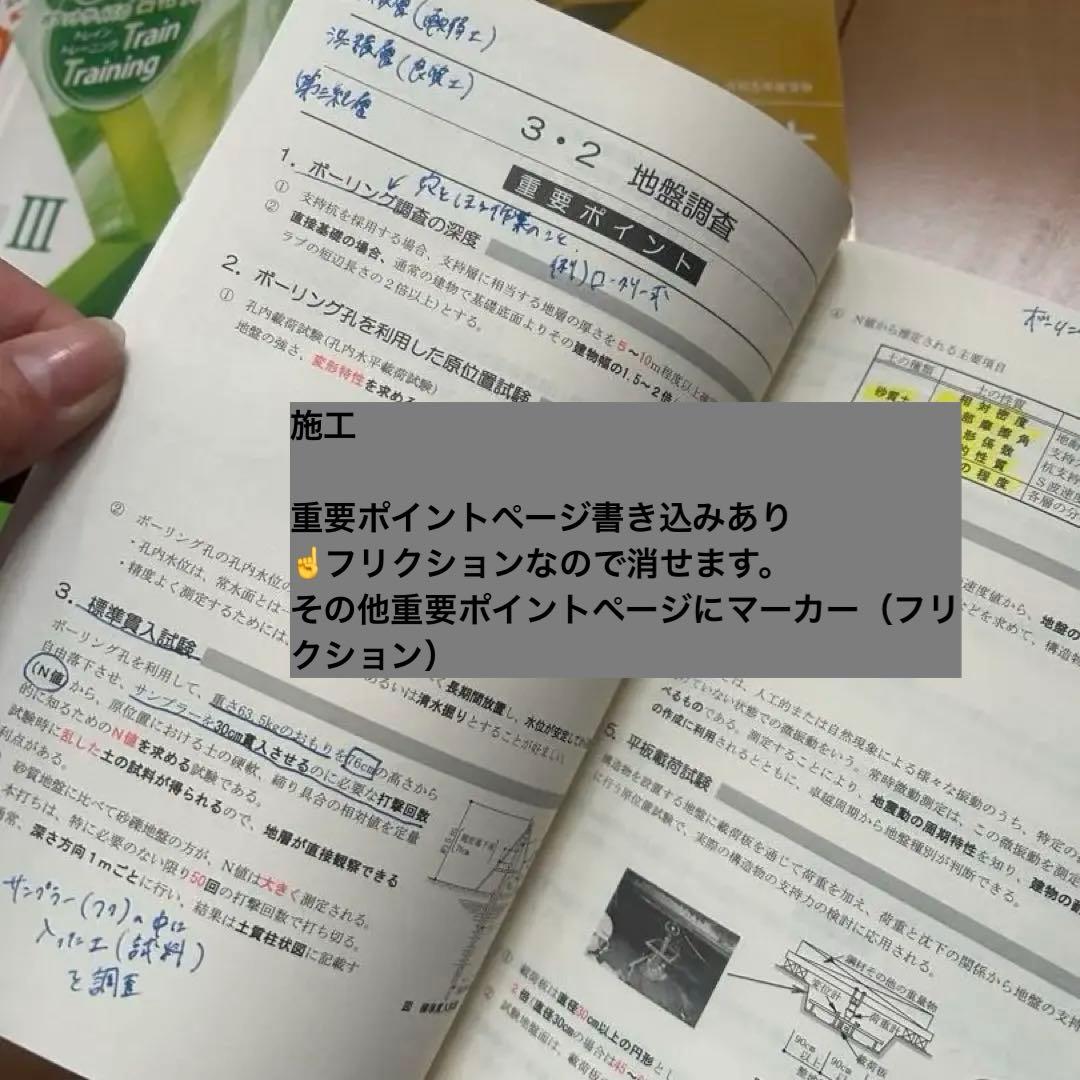 トレイン
トレーニング Train
Training
Ⅲ
(良質土)
3・2 地盤調査
重要ポイント
1. ボーリング調査の深度
穴をほる作業のこと。
例)ロータリー式
① 支持杭を採用する場合、支持層に相当する地層の厚さを5~10m程度以上確
② 直接基礎の場合、通常の建物で基礎底面よりその建物幅の1.5~2倍(
ラブの短辺長さの2倍以上)とする。
2. ボーリング孔を利用した原位置試験
① 孔内載荷試験(孔内水平載荷試験)
地盤の強さ、変形特性を求める
② ボーリング孔の孔内水位の
・孔内水位は、常水面とは
・精度よく測定するためには、
く長期間放置し、水位が安定して
あるいは清水掘りとすることが好ましい
3. 標準貫入試験
ボーリング孔を利用して、重さ63.5kgのおもりを76cmの高さから
自由落下させ、サンプラーを30cm貫入させるのに必要な打撃回数
(N値)から、原位置における土の硬軟、締り具合の相対値を定量
的に知るためのN値を求める試験である。
試験時に乱した土の試料が得られるので、地層が直接観察できる
利点がある。
砂質地盤に比べて砂礫地盤の方が、N値は大きく測定される。
本打ちは、特に必要のない限り50回の打撃回数で打ち切る。
通常、深さ方向1mごとに行い、結果は土質柱状図に記載す
サンプラー(ワク)の中に
入った土(試料)
を調査
施工
重要ポイントページ書き込みあり
☝フリクションなので消せます。
その他重要ポイントページにマーカー（フリ
クション）
④ N値から推定される主要項目
土の種類
土の性質
砂質土
相対密度
摩擦角
形係数
的性質
の程度
支持
杭支持
S波速度
各層の分
速度値から、地盤の
などを求めて、構造物
は、人工的または自然現象による様々な振動のうち、特定の
ていない状態での微振動をいう。常時微動測定は、この微振動を測定
べるものである。測定することにより、地震動の周期特性を知り、建物の耐
の作成に利用されるとともに、卓越周期から地盤種別が判断できる。
5. 平板載荷試験
構造物を設置する地盤に載荷板を通じて荷重を加え、荷重と沈下の関係から地盤の支持
に行う原位置試験で、実際の構造物の支持力の検討に応用される。
① 載荷板は直径30cm以上の円形とし
② 試験地盤面は、載荷板
2倍(直径30cmの場合は45~
鋼材その他の重量物
変位計
荷重計
載荷板
90cm
以上
90cm
以上